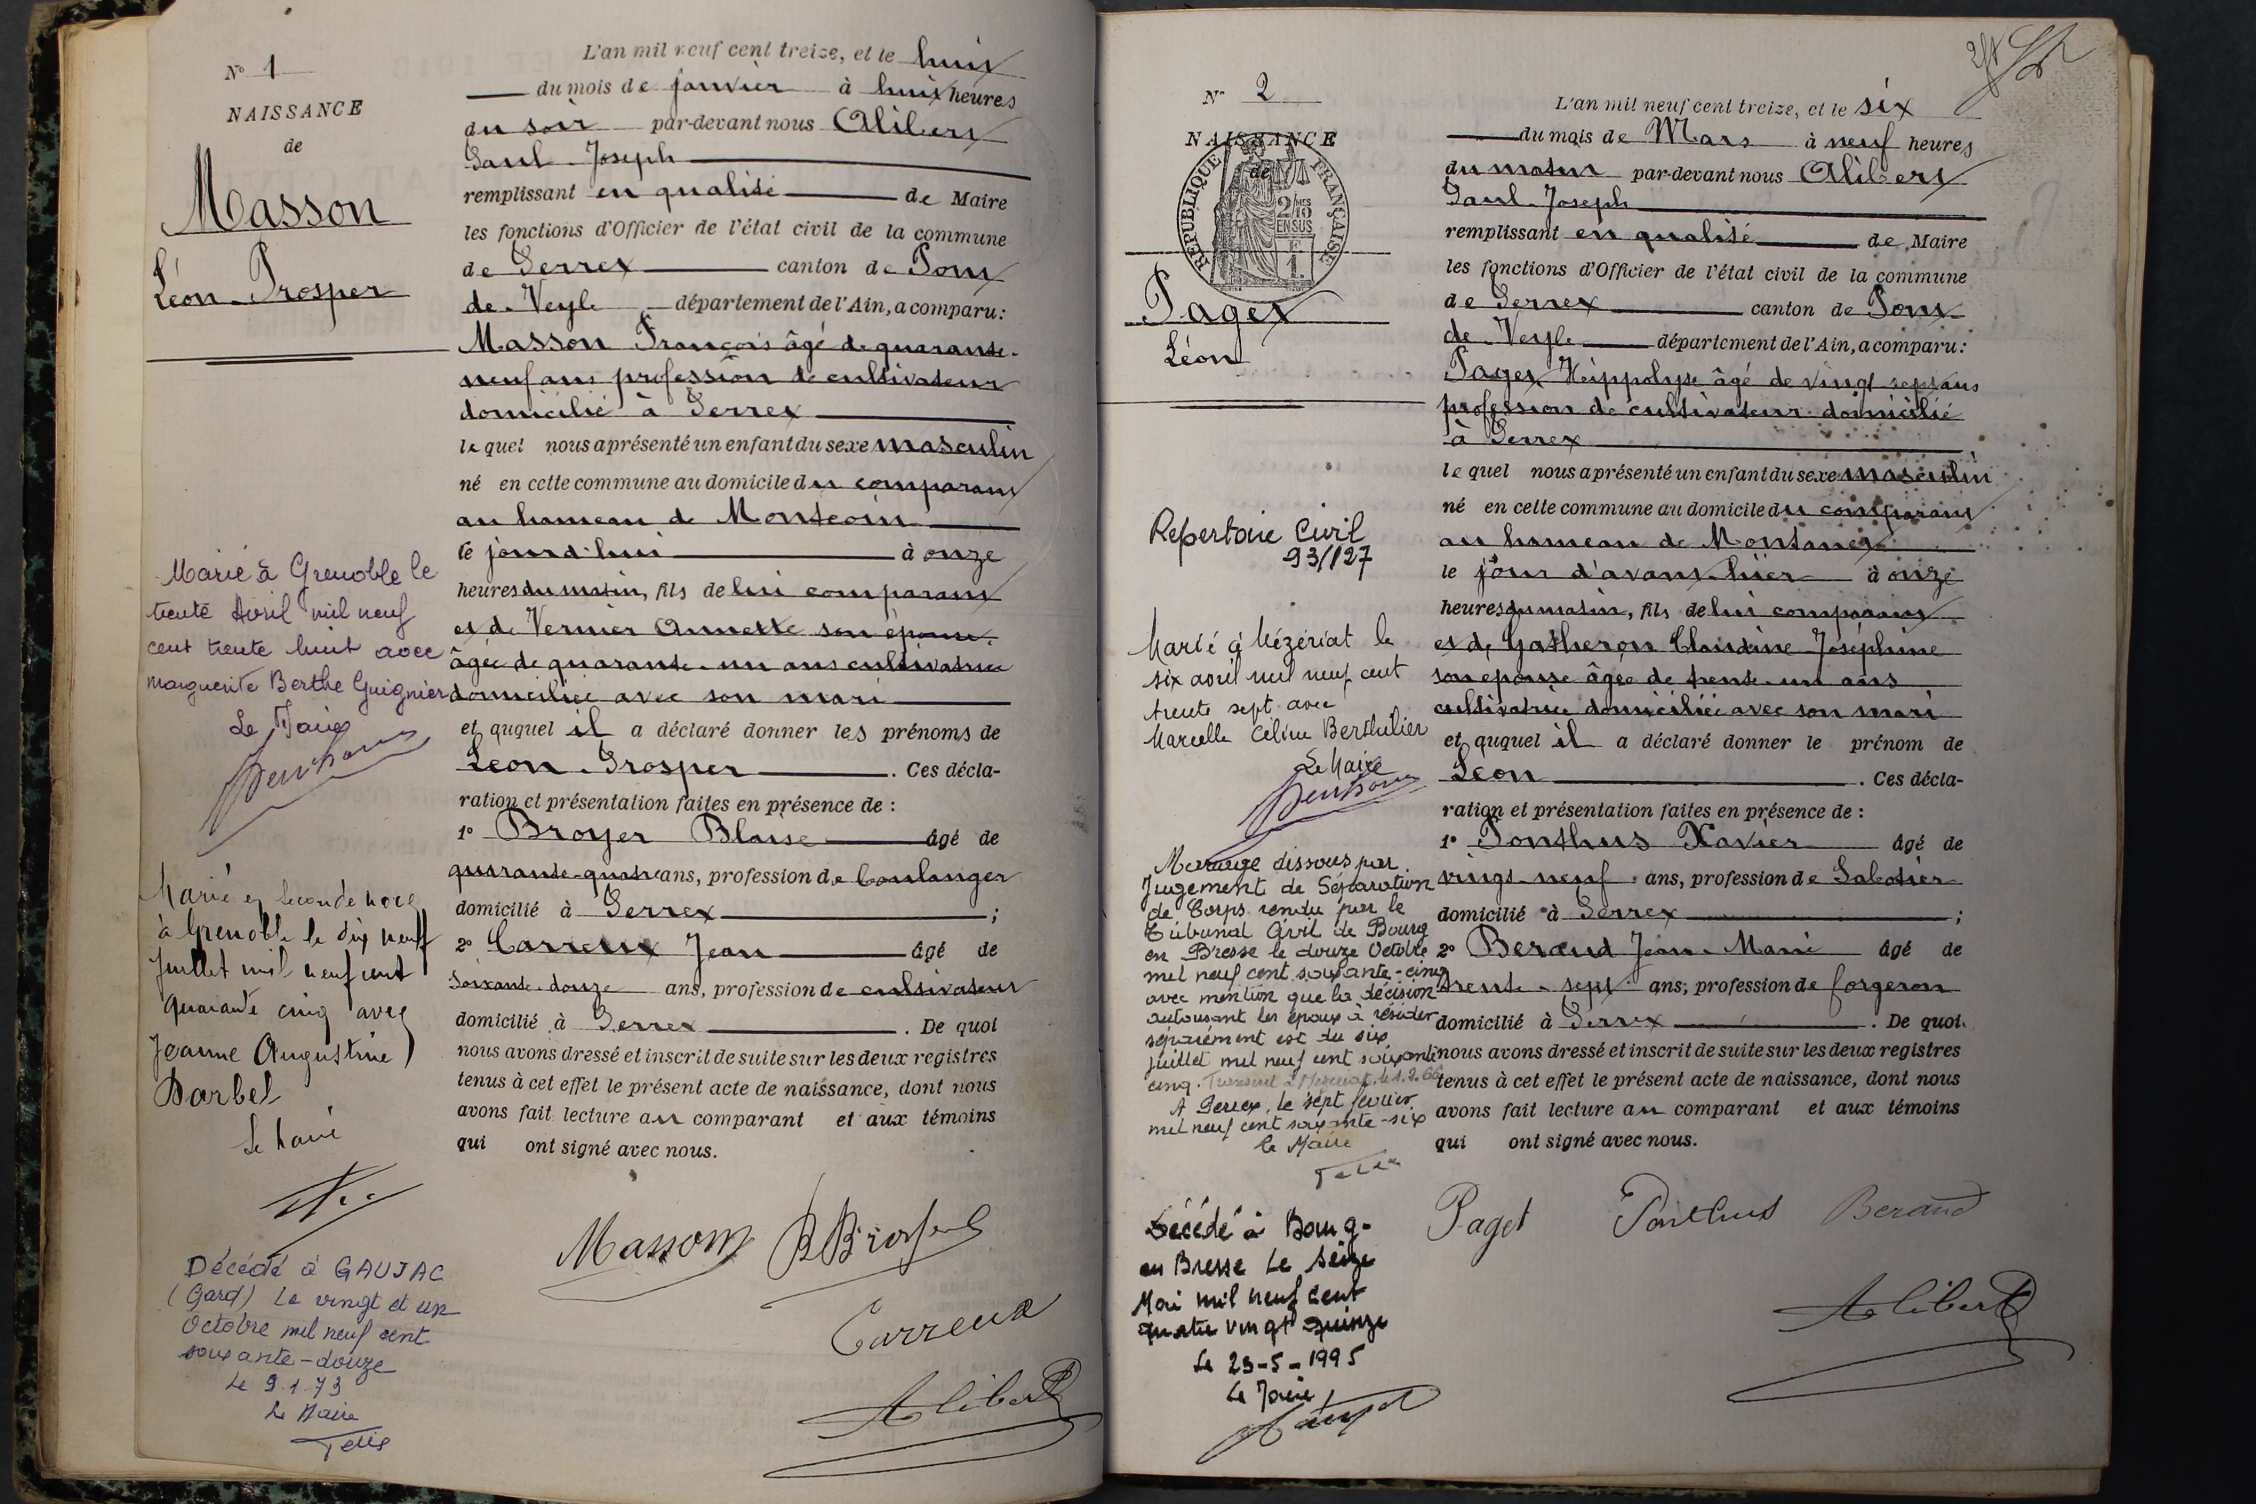 N° 1
NAISSANCE
de
Masson
Léon-Prosper
L'an mil neuf cent treize, et le huit
du mois de janvier à huit heures
du soir par-devant nous Alibert
Paul-Joseph
remplissant en qualité de Maire
les fonctions d'Officier de l'état civil de la commune
de Perrex canton de Pont
de-Veyle département de l'Ain, a comparu:
Masson François âgé de quarante-
neuf ans profession de cultivateur
domicilié à Perrex
lequel nous a présenté un enfant du sexe masculin
né en cette commune au domicile du comparant
au hameau de Montcoin
le jourd'hui à onze
heures du matin, fils de lui comparant
et de Vernier Annette son épouse
âgée de quarante-un ans cultivatrice
domiciliée avec son mari
et auquel il a déclaré donner les prénoms de
Léon-Prosper. Ces décla-
ration et présentation faites en présence de :
1° Broyer Blaise âgé de
quarante-quatre ans, profession de boulanger
domicilié à Perrex ;
2° Carreux Jean âgé de
soixante-douze ans, profession de cultivateur
domicilié à Perrex. De quoi
nous avons dressé et inscrit de suite sur les deux registres
tenus à cet effet le présent acte de naissance, dont nous
avons fait lecture au comparant et aux témoins
qui ont signé avec nous.
Masson
Carreux
Alibert
Marié à Grenoble le
trente Avril mil neuf
cent trente huit avec
Marguerite Berthe Guignier
Le Maire
Marié en seconde noce
à Grenoble le dix neuf
Juillet mil neuf cent
quarante cinq avec
Jeanne Augustine
Barbel
Le Maire
Décédé à GAUJAC
(Gard) Le vingt et un
Octobre mil neuf cent
soixante-douze
Le 9.1.73
Le Maire
N° 2
NAISSANCE
de
RÉPUBLIQUE FRANÇAISE
2/10MES
EN SUS
F
1.
Paget
Léon
L'an mil neuf cent treize, et le six
du mois de Mars à neuf heures
du matin par-devant nous Alibert
Paul-Joseph
remplissant en qualité de Maire
les fonctions d'Officier de l'état civil de la commune
de Perrex canton de Pont
de-Veyle département de l'Ain, a comparu:
Paget Hippolyte âgé de vingt sept ans
profession de cultivateur domicilié
à Perrex
lequel nous a présenté un enfant du sexe masculin
né en cette commune au domicile du comparant
au hameau de Montanet
le jour d'avant-hier à onze
heures du matin, fils de lui comparant
et de Gatheron Claudine Joséphine
son épouse âgée de trente-un ans
cultivatrice domiciliée avec son mari
et auquel il a déclaré donner le prénom de
Léon. Ces décla-
ration et présentation faites en présence de :
1° Ponthus Xavier âgé de
vingt-neuf ans, profession de Sabotier
domicilié à Perrex ;
2° Beraud Jean-Marie âgé de
trente-sept ans, profession de forgeron
domicilié à Perrex. De quoi
nous avons dressé et inscrit de suite sur les deux registres
tenus à cet effet le présent acte de naissance, dont nous
avons fait lecture au comparant et aux témoins
qui ont signé avec nous.
Paget Ponthus Beraud
Alibert
Repertoire Civil
93/127
Marié à Mézériat le
six avril mil neuf cent
trente sept avec
Marcelle Céline Berthilier
Le Maire
Mariage dissous par
Jugement de Séparation
de Corps rendu par le
Tribunal Civil de Bourg
en Bresse le douze Octobre
mil neuf cent soixante-cinq
avec mention que la décision
autorisant les époux à résider
séparément est du six
Juillet mil neuf cent soixante
cinq.
A Perrex, le sept février
mil neuf cent soixante-six
Le Maire
Décédé à Bourg-
en Bresse Le Seize
Mai mil neuf cent
quatre vingt quinze
Le 23-5-1995
Le Maire